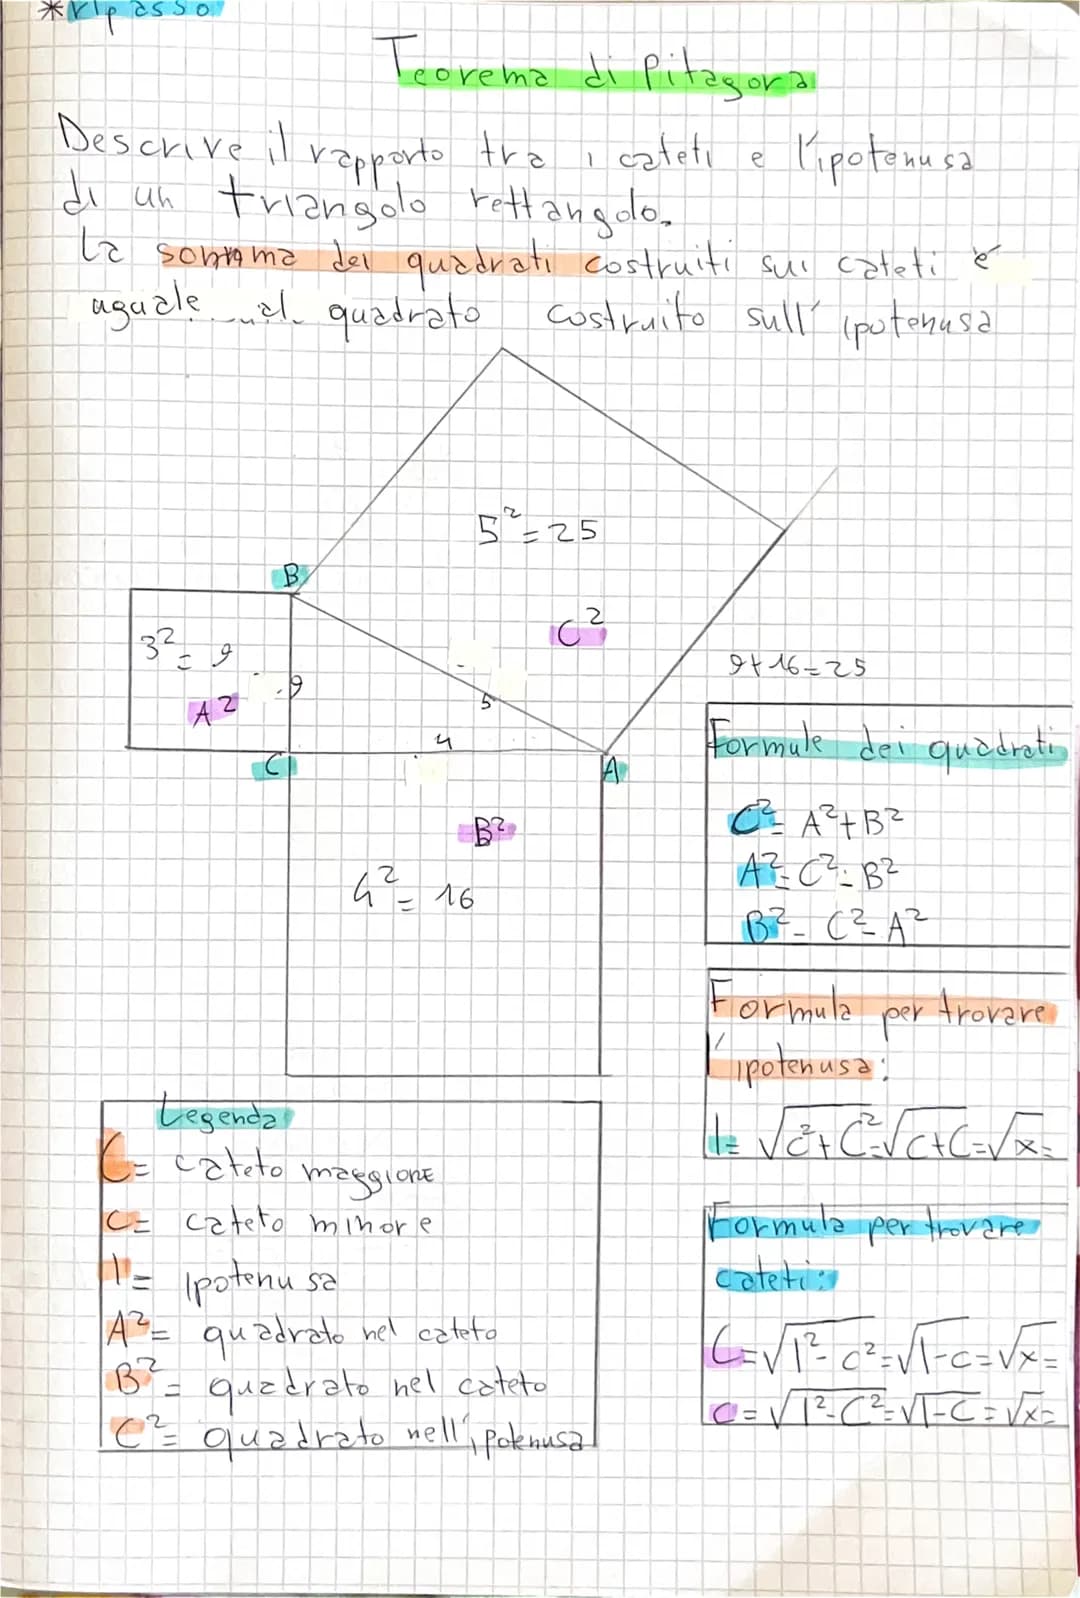 *ripasso
Teorema di Pitagora
Descrive il rapporto tra i cateti e l'ipotenusa
di un triangolo rettangolo.
La somma dei quadrati costruiti sui cateti è
uguale al quadrato costruito sull'ipotenusa
5²=25
B
C²
3²=9
9
A²
5
4
C
A
9+16=25
B²
4²=16
Formule dei quadrati
C²= A²+B²
A²=C²-B²
B²= C²-A²
Formula per trovare
l'ipotenusa:
I= √c²+C²=√c+C=√x=
Formula per trovare
cateti:
C=√I²-c²=√I-c=√x=
c=√I²-C²=√I-C=√x=
Legenda
C= cateto maggiore
c= cateto minore
I= Ipotenusa
A²= quadrato nel cateto
B²= quadrato nel cateto
C²= quadrato nell'ipotenusa